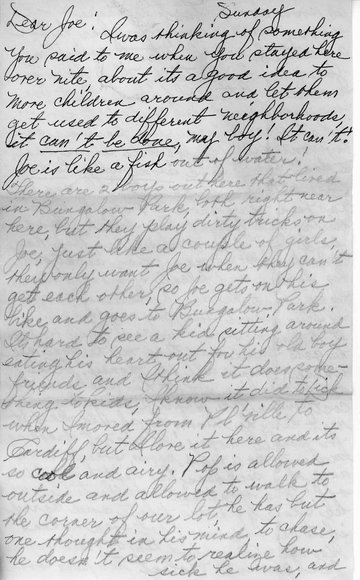 Sunday
Dear Joe: I was thinking of something
you said to me when you stayed here
over nite, about its a good idea to
move children around and let them
get used to different neighborhoods,
it can't be done, my boy! It can't!
Joe is like a fish out of water!
There are 2 boys out here that lived
in Bungalow Park, both right near
here, but they play dirty tricks on
Joe, just like a couple of girls,
they only want Joe when they can't
get each other, so Joe gets on his
bike and goes to Bungalow Park.
Its hard to see a kid sitting around
eating his heart out for his old boy
friends and I think it does some-
thing to kids, I know it did to
when I moved from to
Cardiff, but I love it here and its
so cool and airy. Pop is allowed
outside and allowed to walk to
the corner of our lot, he has but
one thought in his mind, to chase,
he doesn't seem to realize how
sick he was, and